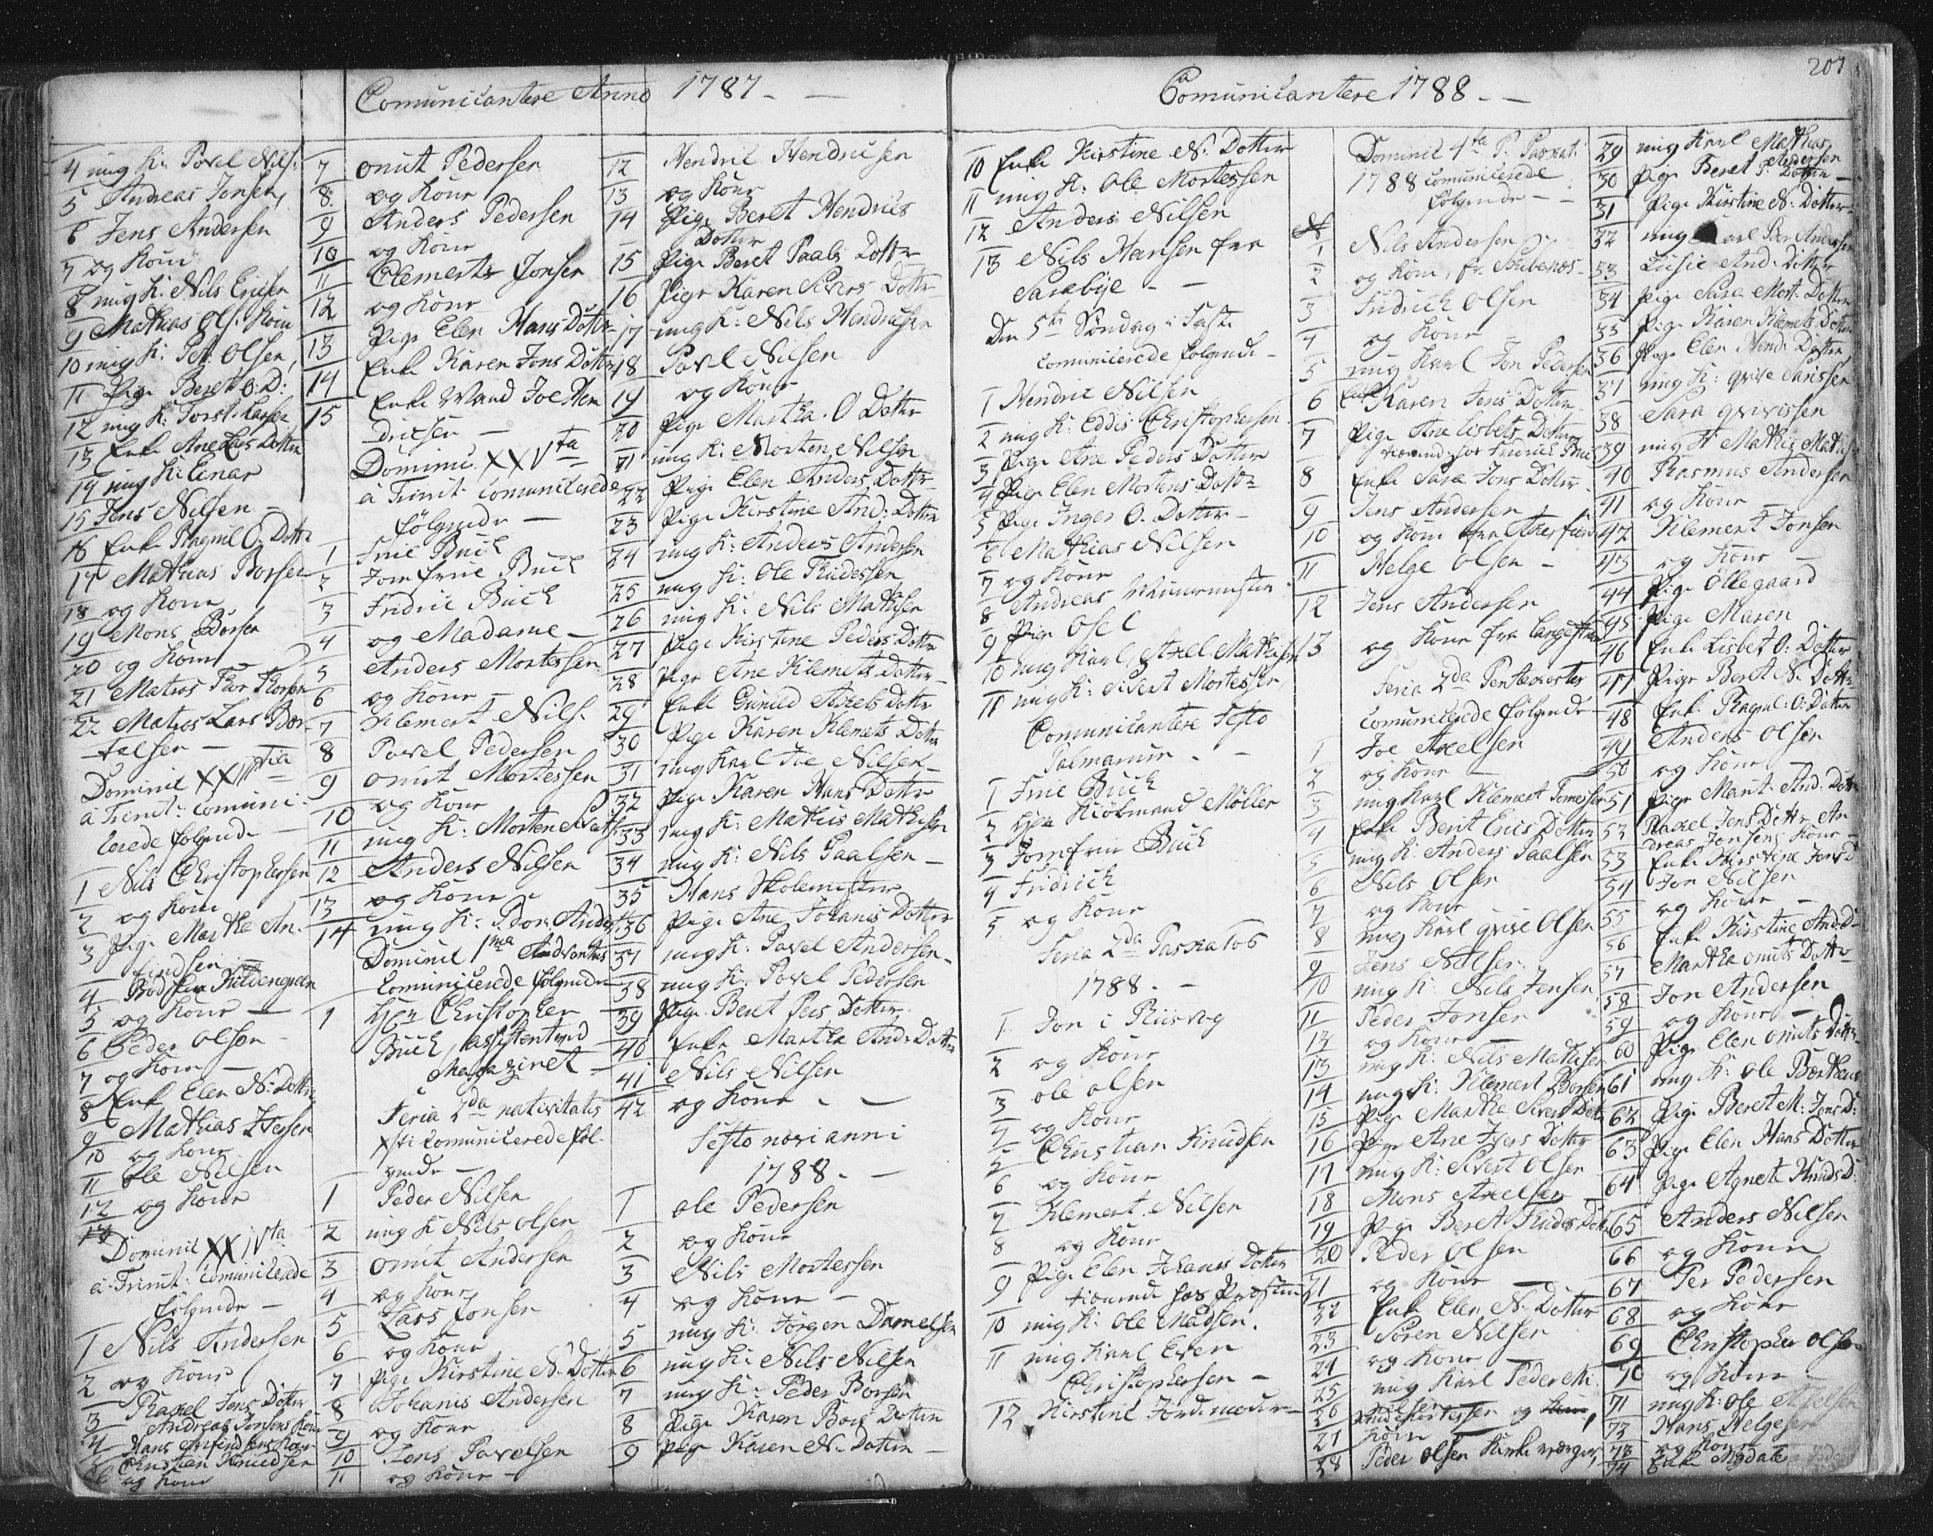 Comunicantere Anno 1787 -
4 ung K: Povel Nils:
5 Andreas Jonsen,
6 Jens Andersen
7 og Kone
8 ung K: Nils Ericsen
9 Mathias Ols: Kone
10 ung K: Pet: Olsen,
11 Pige Beret O: D:
12 ung K: Torst: Larsen
13 Enke Ane Lars Dotter
14 ung K: Einar
15 Jens Nilsen -
16 Enke Ragnil O: Dotter
17 Mathias Borsen
18 og Kone
19 Mons Borsen
20 og Kone
21 Matros Thor Thorsen
22 Matros Lars Bær-
telsen -
Dominic XXIII tia
a Trinit: Comuni-
cerede følgende -
1 Nils Christophersen
2 og Kone
3 Pige Martha An-
findsen
4 Bødker Kildengreen
5 og Kone -
6 Peder Olsen -
7 og Kone -
8 Enke Elen N: Dotter
9 Mathias Iversen
10 og Kone
11 Ole Nilsen
12 og Kone
13
Dominic XXIV ta
a Trinit: Comunicerede
følgende -
1 Nils Andersen
2 og Kone
3 Rakel Jens Dotter
Andreas Jonsens Kone
4 Hans Anfindsens Kone
5 Christian Knudsen
6 og Kone
7 Onut Pedersen
8 og Kone
9 Anders Pedersen
10 og Kone
11 Clement Jonsen
12 og Kone
13 Pige Elen Hans Dotter
14 Enke Karen Jons Dotter
15 Enke Mand Joe Hen
dricsen -
Dominic XXV ta
a Trinit: Comunicerede
følgende -
1 Frue Buch
2 Jomfrue Buch
3 Fridric Buch
4 og Madame -
5 Anders Mortessen
6 og Kone -
7 Klemert Nils:
8 Povel Pedersen
9 Onut Mortessen
10 og Kone
11 ung K: Morten
12 Anders Nilsen
13 og Kone -
14 ung K: Andes
Dominic 1ma Adventus
Comunicerede følgende
1 Hr Christopher
Buch, assistent ved
Magazinet -
Feria 2da nativitatis
Xsti Comunicerede føl-
gende -
1 Peder Nilsen
2 ung K Nils Olsen
3 Onut Andersen
4 og Kone
5 Lars Jonsen
6 og Kone
7 Pige Kirstine N: Dotter
8 Johanis Andersen
9 og Kone
10 Jens Povelsen
11 og Kone -
12 Hendric Hendricsen
13 og Kone
14 Pige Beret Hendrics
Dotter
15 Pige Beret Paals Dotter
16 Pige Karen Sivers Dotter
17 ung K: Nils Hendricsen
18 Povl Nilsen
19 og Kone
20 Pige Martha O Dotter
21 ung K: Morten Nilsen
22 Pige Elen Anders Dotter
23 Pige Kirstine And: Dotter
24 ung K: Anders Andersen
25 ung K: Ole Thudessen
26 ung K: Nils Mathisen
27 Pige Kirstine Peders Dotter
28 Pige Ane Klemets Dotter
29 Enke Gunild Axels Dotter
30 Pige Karen Klemets Dotter
31 ung Karl Joe Nilsen -
32 Pige Karen Hans Dotter
33 ung K: Mathis Mathisen
34 ung K: Nils Paalsen -
35 Hans Skolemester
36 Pige Ane Johanis Dotter
37 ung K: Povel Andersen -
38 ung K: Povel Pedersen
39 Pige Beret Pers Dotter
40 Enke Martha And: Dotter
41 Nils Nilsen
42 og Kone - -
Festo novi anni
1788. -
1 Ole Pedersen
2 og Kone
3 Nils Mortessen
4 og Kone -
5 ung K: Jørgen Danielsen
6 ung K: Nils Nilsen
7 ung K: Peder Borsen
8 Pige Karen Bors Dotter
9 Pige Karen N: Dotter -
Comunicantere 1788 - -
207
10 Enke Kirstine N: Dotter
11 ung K: Ole Mortessen
12 Anders Nilsen
13 Nils Hansen fra
Sarebye - -
Den 5te Søndag i Faste
Comunicerede følgende -
1 Hendric Nilsen
2 ung K: Eddis Christophersen
3 Pige Ane Peders Dotter
4 Pige Elen Mortens Dotter
5 Pige Inger O. Dotter -
6 Mathias Nilsen
7 og Kone
8 Andreas Muurmester
9 Pige Osel
10 ung Karl Axel Mathisen
11 ung K: Sivert Mortessen
Comunicantere Festo
Palmarum -
1 Frue Buch
2 Hr Kiøbmand Møller
3 Jomfrue Buch
4 Fridrich
5 og Kone
Feria 2da Paskatos
1788. -
1 Jon i Riisvog
2 og Kone
3 Ole Olsen
4 og Kone
5 Christian Knudsen
6 og Kone
7 Klemert Nilsen
8 og Kone
9 Pige Elen Johanis Dotter
tienende hos Præsten
10 ung K: Ole Madsen.
11 ung Karl Even
Christophersen -
12 Kirstine Jordmoder -
Dominic 4ta P: Paskat:
1788 Comunicerede
følgende - -
1 Nils Andersen
2 og Kone,
3 Fridrich Olsen
4 og Kone
5 ung Karl Jon Pedersen
6 Enke Karen Jens Dotter
7 Pige Ane Lisbets Dotter
tienende hos Fridrich Buch
8 Enke Sara Jons Dotter
9 Jens Andersen
10 og Kone fra
11 Helge Olsen -
12 Jens Andersen
13 og Kone fra
Feria 2da Pentecostes
Comunicerede følgende -
1 Joe Axelsen
2 og Kone -
3 ung Karl Klemert Tomessen
4 Enke Berit Erics Dotter
5 ung K: Anders Paalsen
6 Nils Olsen
7 og Kone
8 ung Karl Gvise Olsen
9 Jens Nilsen -
10 ung K: Nils Jensen
11 Peder Jonsen
12 og Kone -
13 ung K: Nils Mathisen
14 ung K: Klemert Borsen
15 Pige Martha Sivers Dotter
16 Pige Ane Ivers Dotter
17 ung K: Sivert Olsen
18 Mons Axelsen
19 Pige Beret Thudes Dotter
20 Peder Olsen
21 og Kone -
22 Enke Elen N: Dotter
23 Søren Nilsen
24 og Kone
25 ung Karl Peder
26 og
27 Kone
28 Peder Olsen Kirke værger,
29 ung Karl Mathias
Andersen
30 Pige Beret P: Dotter -
31 Pige Kirstine N: Dotter
32 ung Karl Per Andersen
33 Lusie And: Dotter
34 Pige Sara Mort: Dotter
35 Pige Karen Klemets Dotter
36 Pige Elen Hend: Dotter
37 ung K: Gvise
38 Sara Gvisissen
39 ung K Mathis Mathis:
40 Rasmus Andersen
41 og Kone -
42 Klemert Jonsen
43 og Kone -
44 Pige Ollegaard
45 Pige Maren
46 Enke Lisbet O: Dotter
47 Pige Beret N: Dotter
48 Enke Ragnil: O: Dotter
49 Anders Olsen
50 og Kone -
51 Pige Marit And: Dotter
52 Rakel Jens Dotter An
dreas Jonsens Kone -
53 Enke Kirstine Jons D
54 Jon Nilsen
55 og Kone -
56 Enke Kirstine And: D:
57 Martha Onuts Dotter
58 Jon Andersen
59 og Kone -
60 Pige Elen Onuts Dotter
61 ung K: Ole Bærthels
62 Pige Beret M: Jons D:
63 Pige Elen Hans Dotter
64 Pige Agnete Knuds D:
65 Anders Nilsen
66 og Kone
67 Per Pedersen
68 og Kone
69 Christopher Olsen
70 og Kone -
71 ung K: Ole Axelsen
72 Hans Helgesen
73 og Kone
74 Enke Magdale